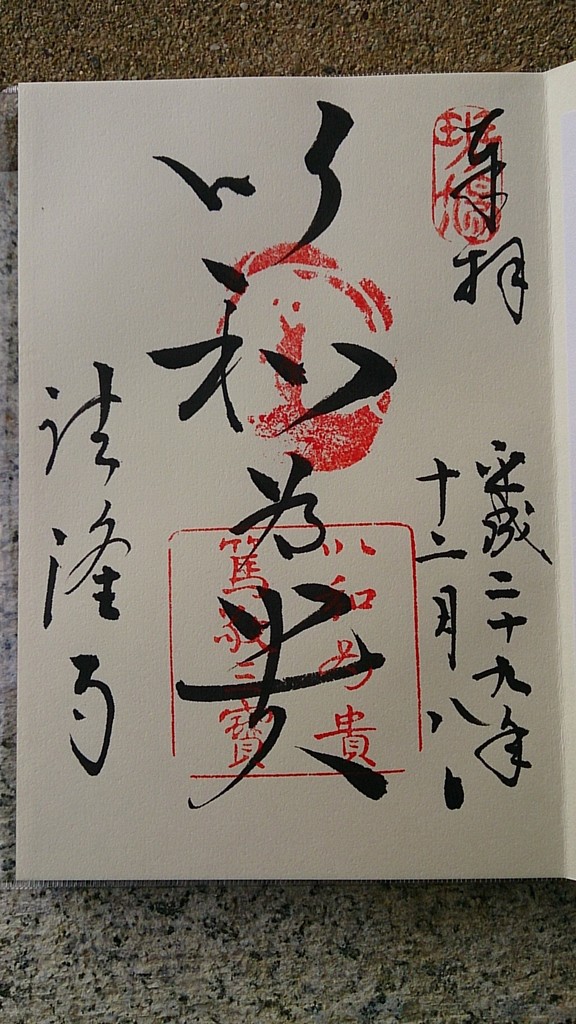 斑鳩
奉拝
平成二十九年
十二月八日
以和為貴
以和為貴
篤敬三寶
法隆寺